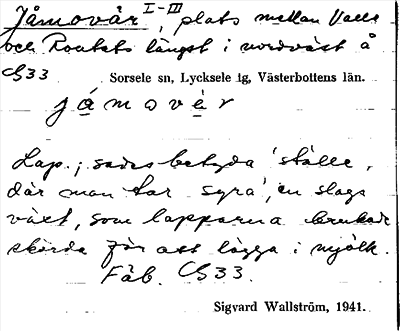 Jåmovår I-III, plats mellan Valle
och Routats längst i nordväst å
C533 Sorsele sn, Lycksele tg, Västerbottens län.
jámovèr
Lap.; sades betyda 'ställe,
där man tar syra', en slags
växt, som lapparna brukade
skörda för att lägga i mjölk.
Fäb. C533.
Sigvard Wallström, 1941.